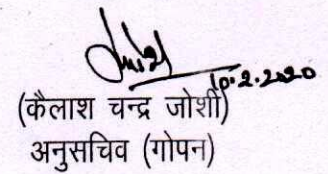 10.2.2020
(कैलाश चन्द्र जोशी)
अनुसचिव (गोपन)